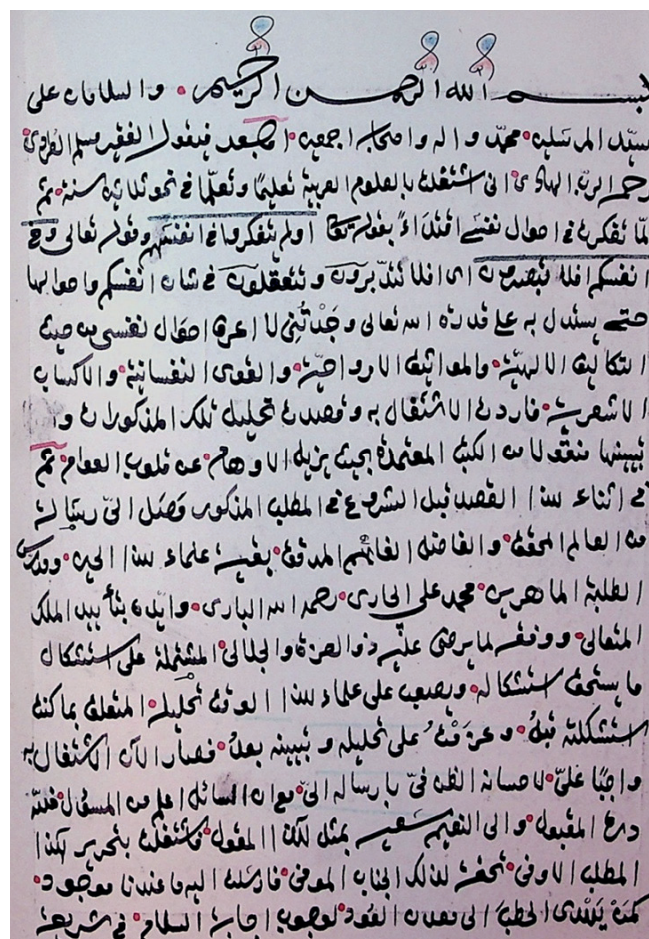 بسم الله الرحمن الرحيم • والسلامان على
سيد المرسلين • محمد واله واصحابه اجمعين • وبعد فيقول الفقير مسلم
الى اشتغلت بالعلوم العربية تعليما وتعلما في نحو ثلاثين سنة • ثم
لما تفكرت في احوال نفسي اقتداءً بقوله تعالى اولم يتفكروا في انفسهم وقوله تعالى وفي
انفسكم افلا تبصرون اى افلا تتدبرون وتتعقلون في شان انفسكم واحوالها
حتى يستدل به على قدرة الله تعالى وجدتني لا اعرف احوال نفسي من حيث
التكاليف الالهية • والروحية • والقوى النفسانية • والاكساب
الاشعرية • فاردت الاشتغال به وقصدت تحليل تلك المذكورات و
تبيينها منقولا من الكتب المعتمدة بحيث يزيل الاوهام • عن قلوب العوام • ثم
في اثناء هذا القصد قبل الشروع في المطلب المذكور وصل الى رسالة
من العالم المحقق • والفاضل المدقق • بقية علماء هذا الحين •
الطلبة الماهرين • محمد على رحمه الله البارى • وايده بتأييد الملك
المتعالى • ووفقه لما يرضى عليه ذو العزة والجلال • المشتملة على استشكال
ما يستحق استشكاله • ويصعب على علماء هذا الوقت تحليله • المتعلق بما كنت
استشكلته قبلُ • وعزمتُ على تحليله وتبيينه بعدُ • فصار الآن الاشتغال به
واجبا علىّ • لاحسانه الظن فىّ بارساله الىّ مع ان السائل اعلم من المسؤل •
المقبول • والى بمثل هذا المقول • فاشتغلت بتحرير لهذا
المطلب الاوفى • لذلك الجناب الموفى • فارسلت اليه ما عندنا موجود •
كمن يهدى الحطب الى لوجوب اجابة السلام • في شريعة